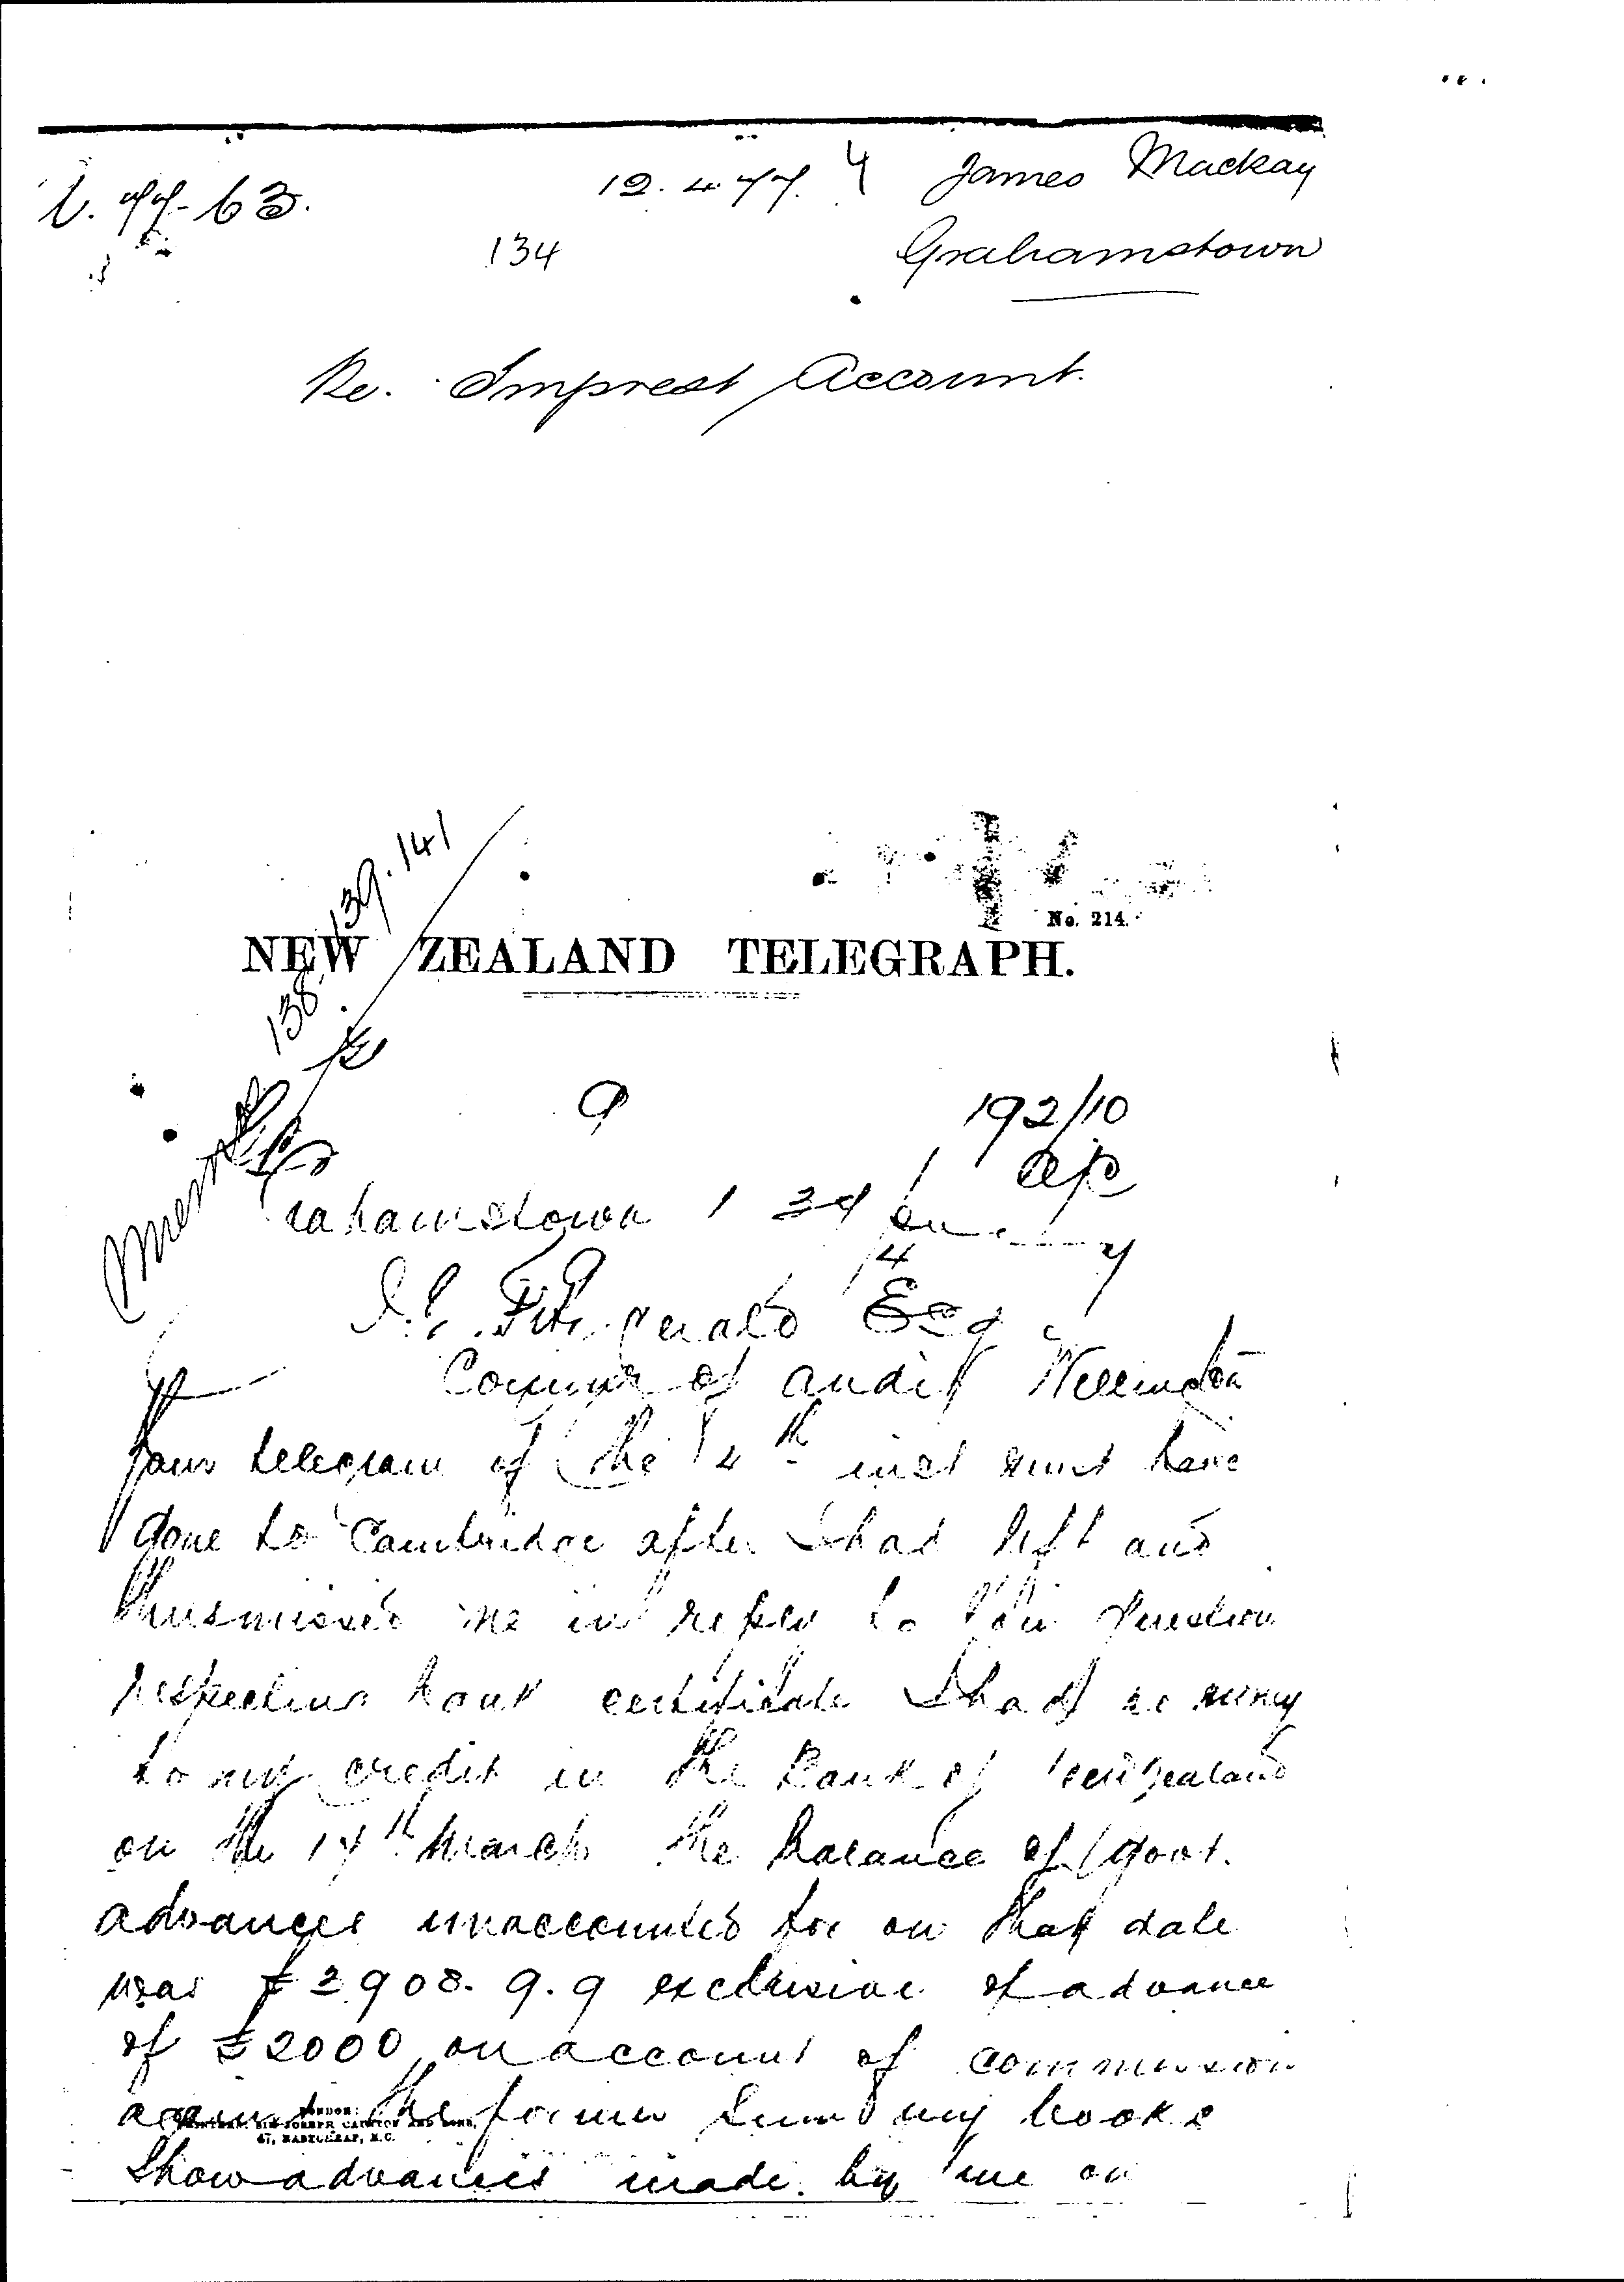 12.4.77. James Mackay
77-63.
134 Grahamstown
Re. Imprest Account.
138. 139. 141
No. 214.
NEW ZEALAND TELEGRAPH.
9 192/10
rahamstown 1 39
Fitzgerald Esq
Commr of audit Wellington
Your telegram of the 4th inst must have
gone to Cambridge after I had left and
thus missed me in reply to question
respecting bank certificate I had no money
to my credit in the Bank of New Zealand
on the 14th March the balance of Govt.
advances unaccounted for on that date
was £2908.9.9 exclusive of advance
of £2000 on account of commission
against the former sum my books
LONDON:
AND SONS,
67, EASTCHEAP, E.C.
Show advances made by me on